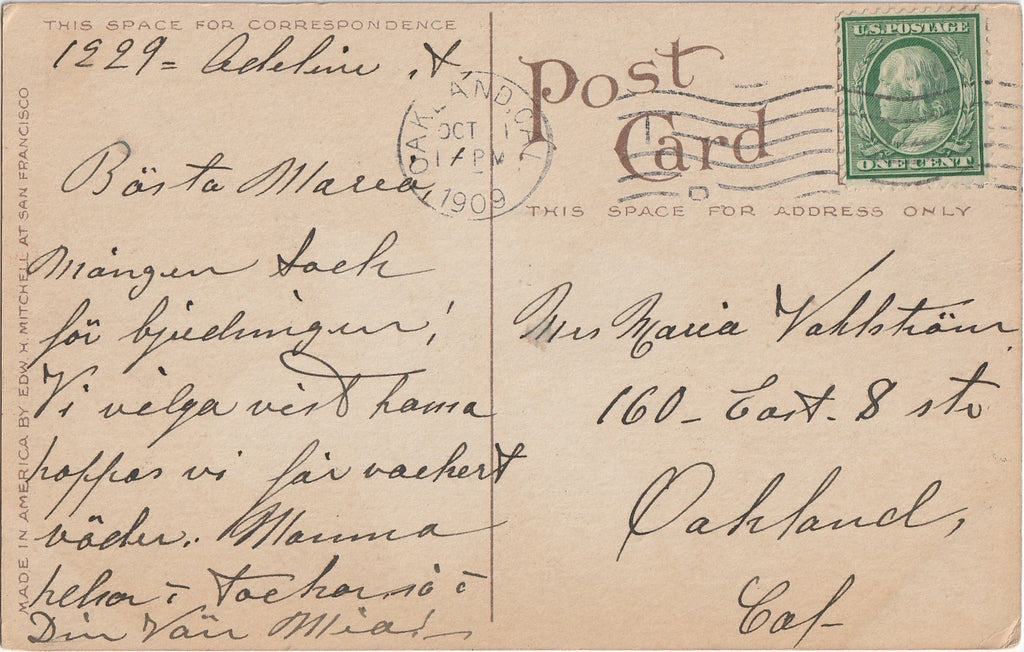 THIS SPACE FOR CORRESPONDENCE
1229 = Adeline st,
Bästa Maria,
Mången tack
för bjudningen!
Vi vilga vist
hoppas vi får vackert
väder. Mamma
helsar
Din Vän Mia!
MADE IN AMERICA BY EDW. H. MITCHELL AT SAN FRANCISCO
OAKLAND, CAL.
OCT 1
PM
1909
Post
Card
U.S. POSTAGE
ONE CENT
THIS SPACE FOR ADDRESS ONLY
Mrs Maria Vahlström
160 - East - 8 str
Oakland,
Cal-